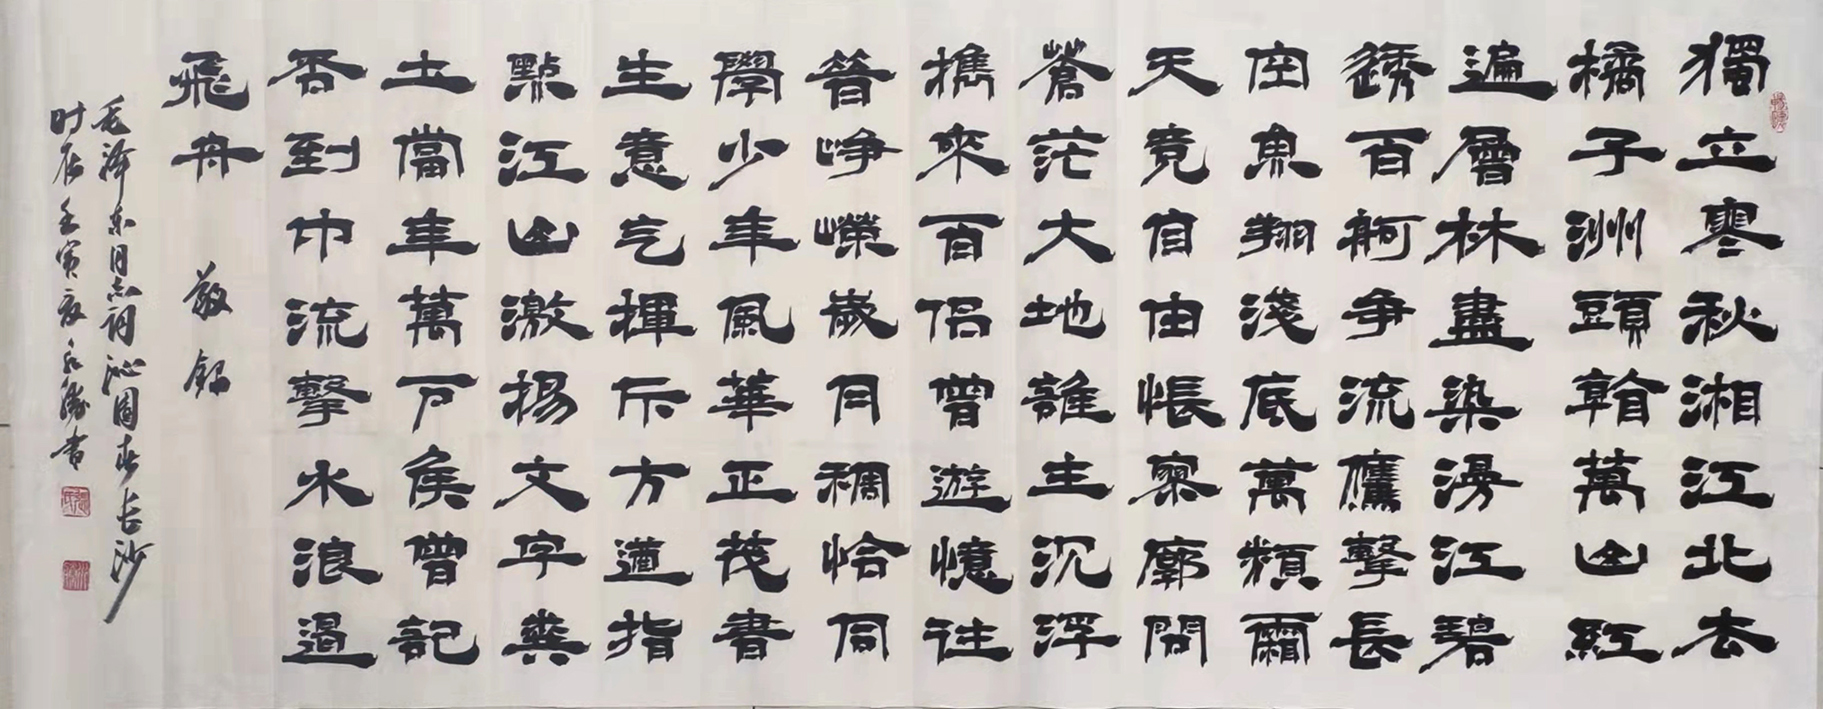 獨立寒秋湘江北去
橘子洲頭看萬山紅
遍層林盡染漫江碧
透百舸爭流鷹擊長
空魚翔淺底萬類霜
天竞自由悵寥廓問
蒼茫大地誰主沉浮
攜來百侶曾遊憶往
昔崢嶸歲月稠恰同
學少年風華正茂書
生意气揮斥方遒指
點江山激揚文字糞
土當年萬戶侯曾記
否到中流擊水浪遏
飛舟 敬錄
毛泽东同志词沁園春長沙
时在壬寅夏書